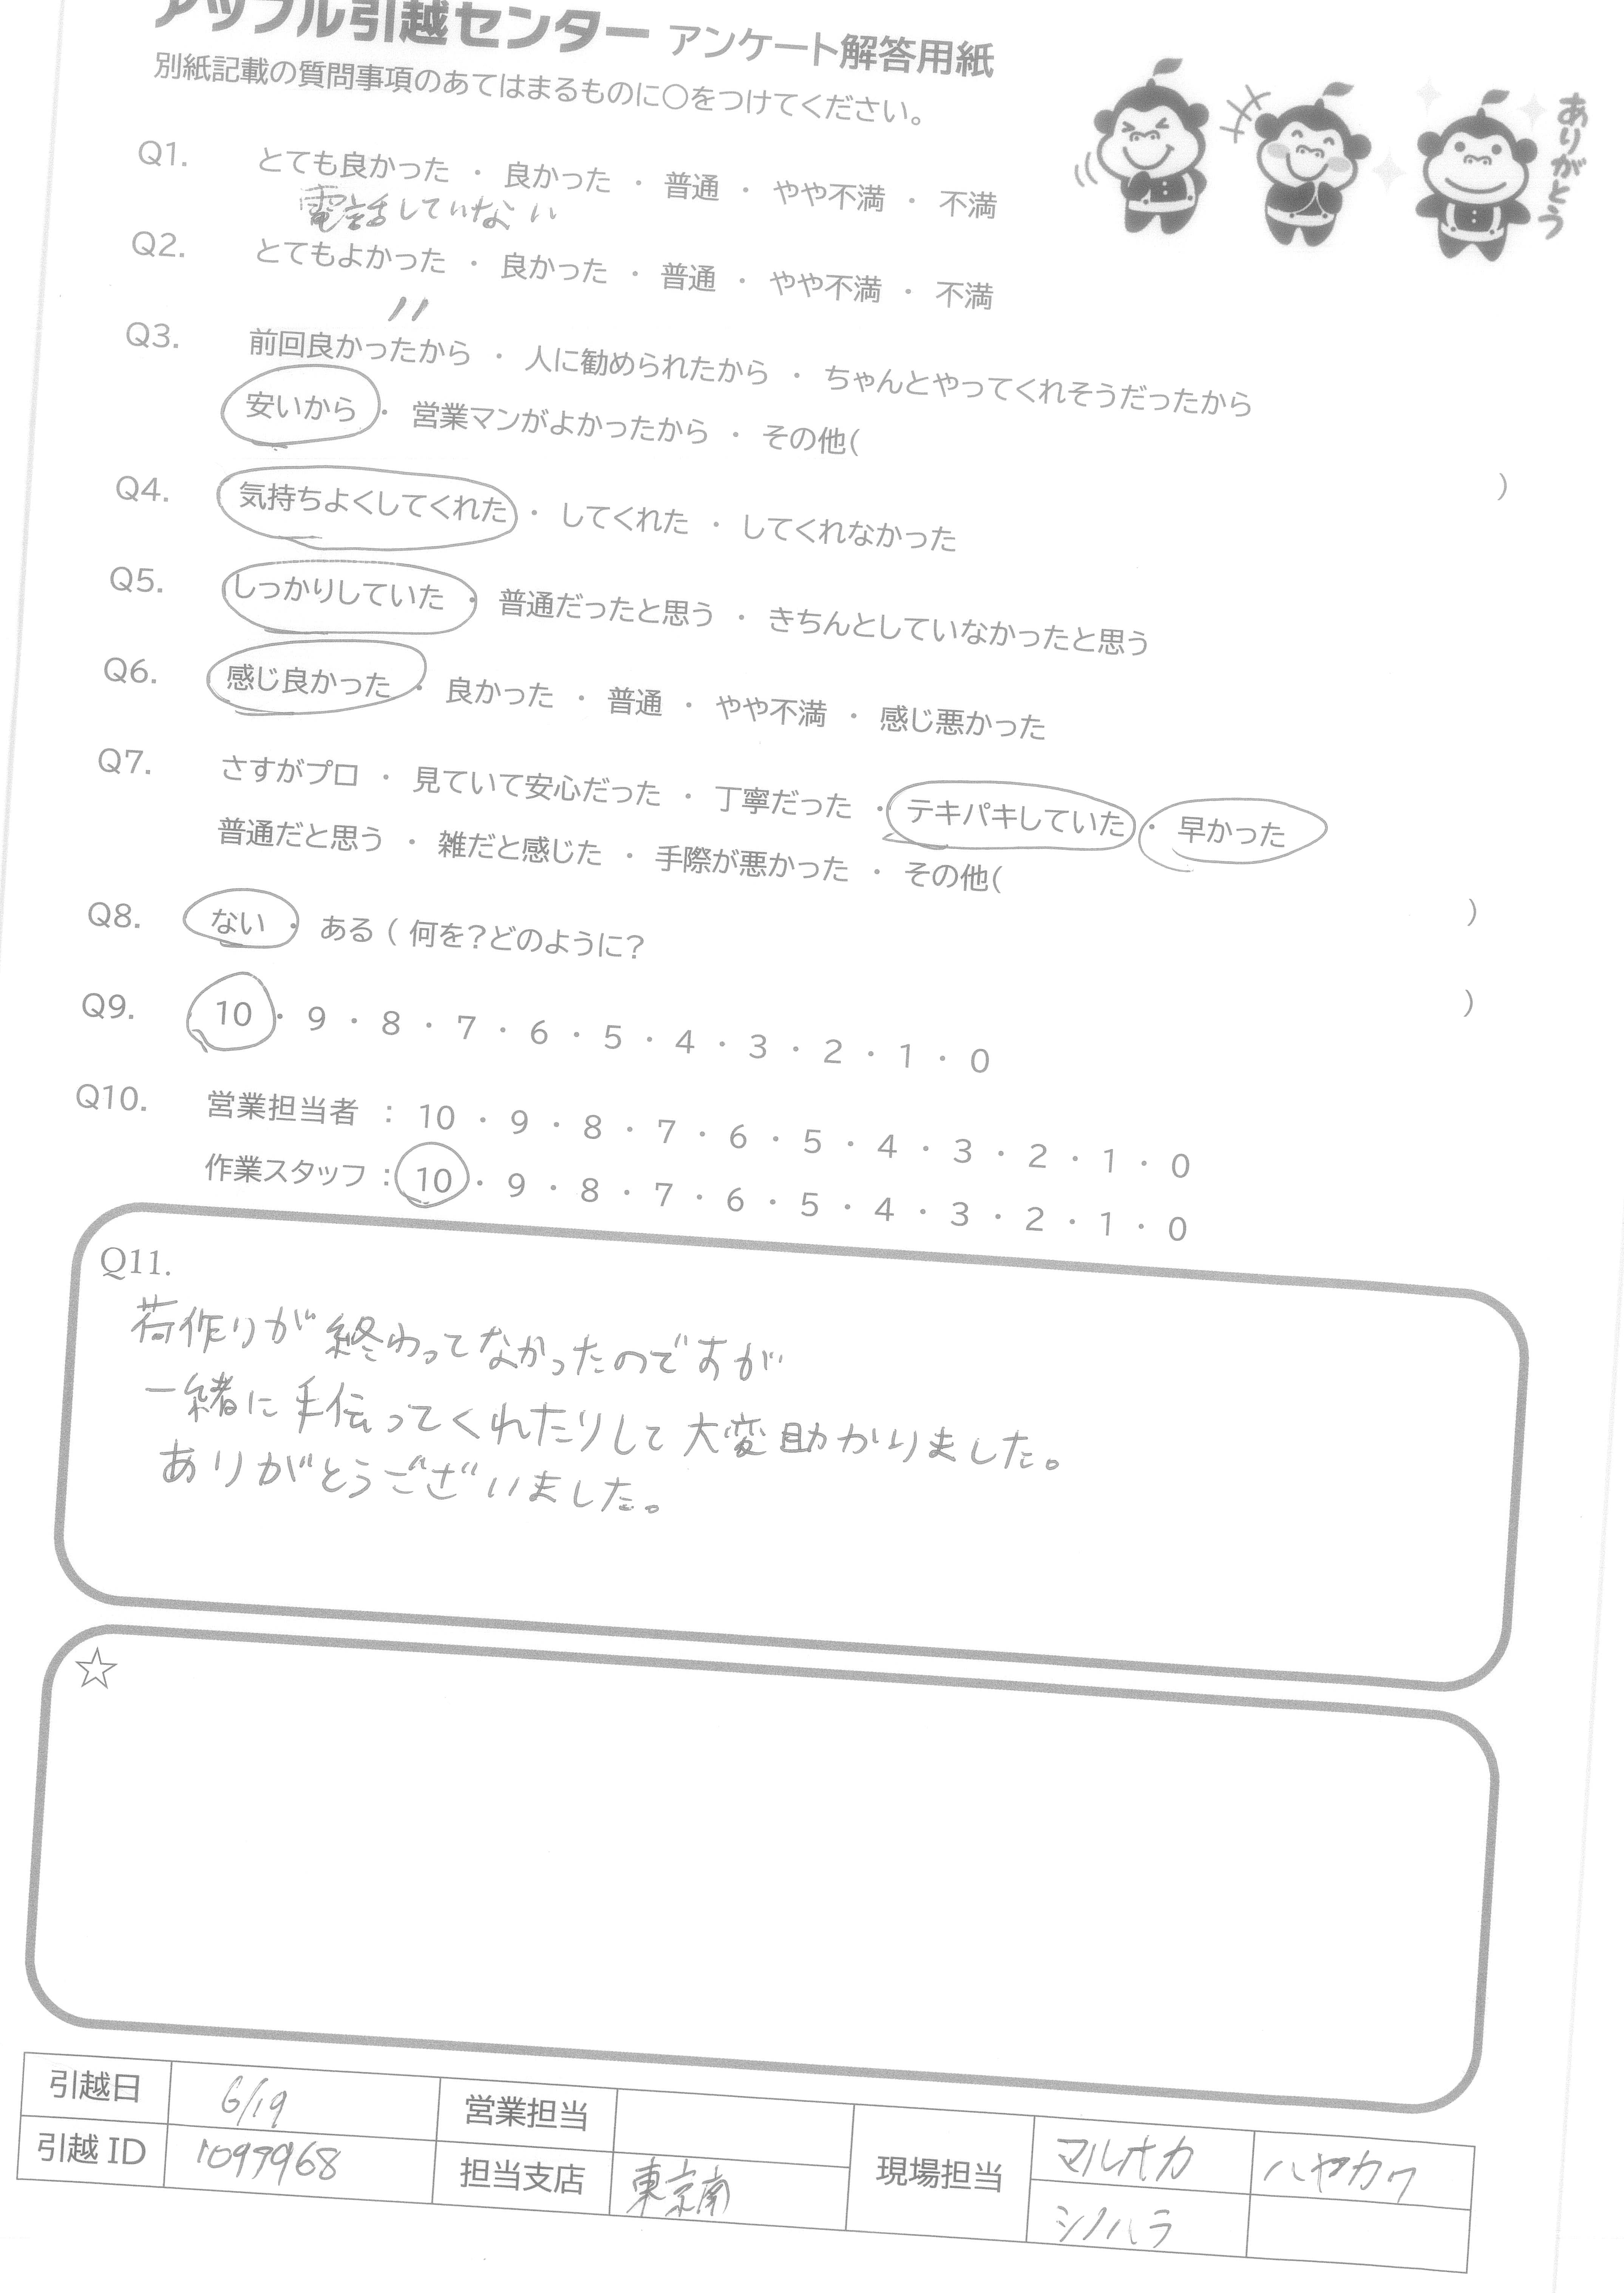 アップル引越センター アンケート解答用紙
別紙記載の質問事項のあてはまるものに○をつけてください。
ありがとう
Q1. とても良かった ・ 良かった ・ 普通 ・ やや不満 ・ 不満
電話していない
Q2. とてもよかった ・ 良かった ・ 普通 ・ やや不満 ・ 不満
〃
Q3. 前回良かったから ・ 人に勧められたから ・ ちゃんとやってくれそうだったから
安いから ・ 営業マンがよかったから ・ その他( )
Q4. 気持ちよくしてくれた ・ してくれた ・ してくれなかった
Q5. しっかりしていた ・ 普通だったと思う ・ きちんとしていなかったと思う
Q6. 感じ良かった ・ 良かった ・ 普通 ・ やや不満 ・ 感じ悪かった
Q7. さすがプロ ・ 見ていて安心だった ・ 丁寧だった ・ テキパキしていた ・ 早かった
普通だと思う ・ 雑だと感じた ・ 手際が悪かった ・ その他( )
Q8. ない ・ ある ( 何を?どのように? )
Q9. 10 ・ 9 ・ 8 ・ 7 ・ 6 ・ 5 ・ 4 ・ 3 ・ 2 ・ 1 ・ 0
Q10. 営業担当者 : 10 ・ 9 ・ 8 ・ 7 ・ 6 ・ 5 ・ 4 ・ 3 ・ 2 ・ 1 ・ 0
作業スタッフ : 10 ・ 9 ・ 8 ・ 7 ・ 6 ・ 5 ・ 4 ・ 3 ・ 2 ・ 1 ・ 0
Q11.
荷作りが終わってなかったのですが
一緒に手伝ってくれたりして大変助かりました。
ありがとうございました。
☆
引越日 6/19 営業担当 現場担当 マルオカ ハヤカワ
引越 ID 1099968 担当支店 東京南 シノハラ